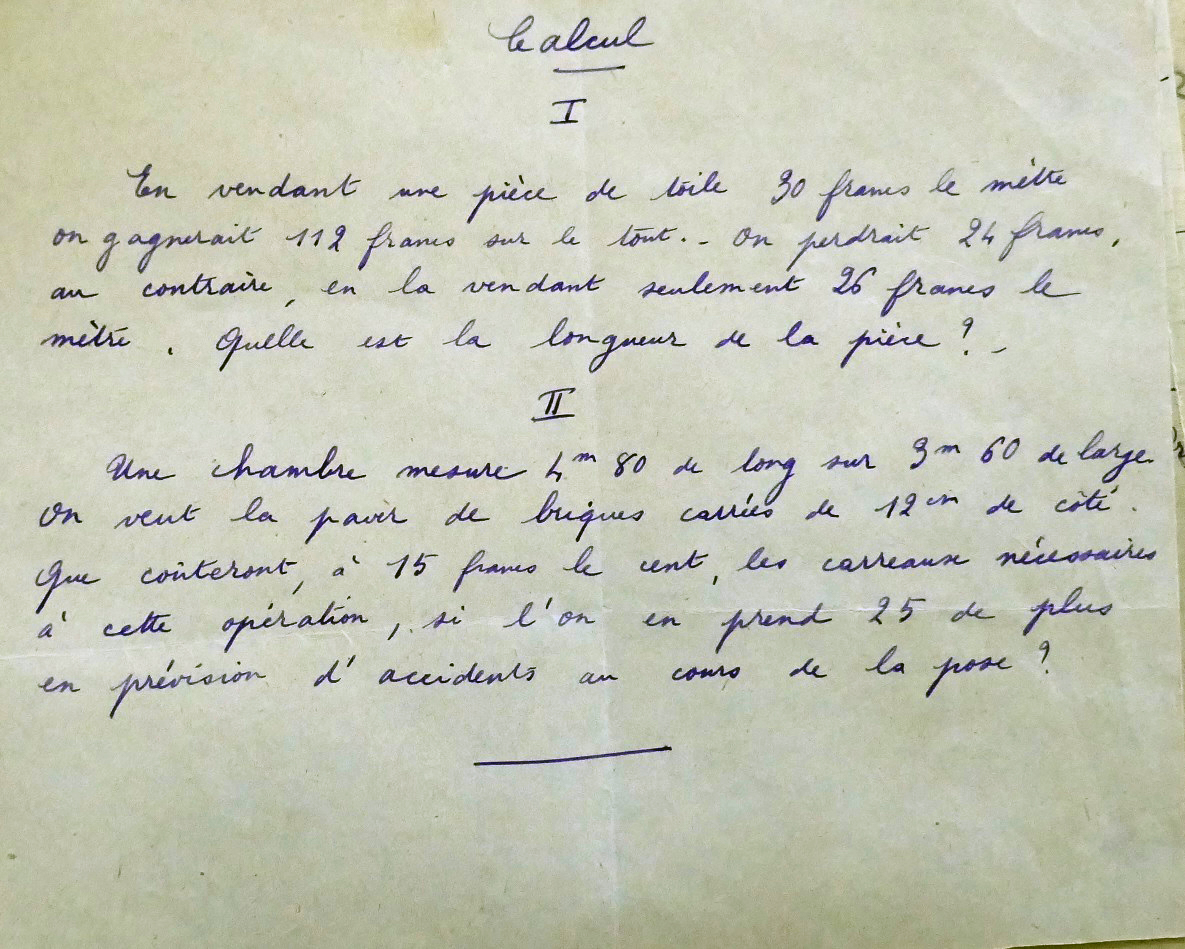 Calcul
I
En vendant une pièce de toile 30 francs le mètre
on gagnerait 112 francs sur le tout. - On perdrait 24 francs,
au contraire, en la vendant seulement 26 francs le
mètre. Quelle est la longueur de la pièce ? -
II
Une chambre mesure 4m 80 de long sur 3m 60 de large.
On veut la paver de briques carrées de 12cm de côté.
Que coûteront, à 15 francs le cent, les carreaux nécessaires
à cette opération, si l'on en prend 25 de plus
en prévision d'accidents au cours de la pose ?